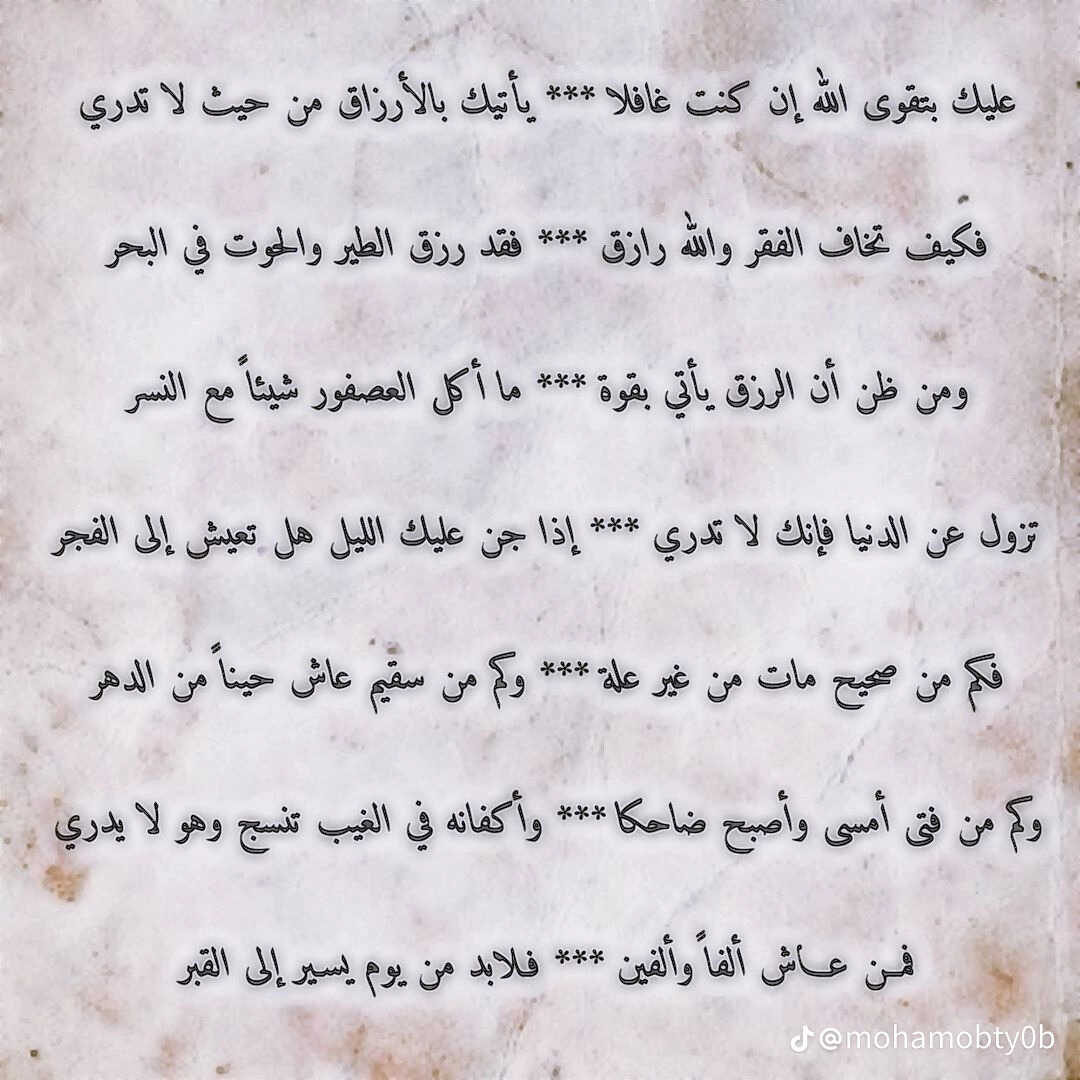 عليك بتقوى الله إن كنت غافلا *** يأتيك بالأرزاق من حيث لا تدري
فكيف تخاف الفقر والله رازق *** فقد رزق الطير والحوت في البحر
ومن ظن أن الرزق يأتي بقوة *** ما أكل العصفور شيئاً مع النسر
تزول عن الدنيا فإنك لا تدري *** إذا جن عليك الليل هل تعيش إلى الفجر
فكم من صحيح مات من غير علة *** وكم من سقيم عاش حيناً من الدهر
وكم من فتى أمسى وأصبح ضاحكا *** وأكفانه في الغيب تنسج وهو لا يدري
فمن عاش ألفاً وألفين *** فلابد من يوم يسير إلى القبر
@mohamobty0b